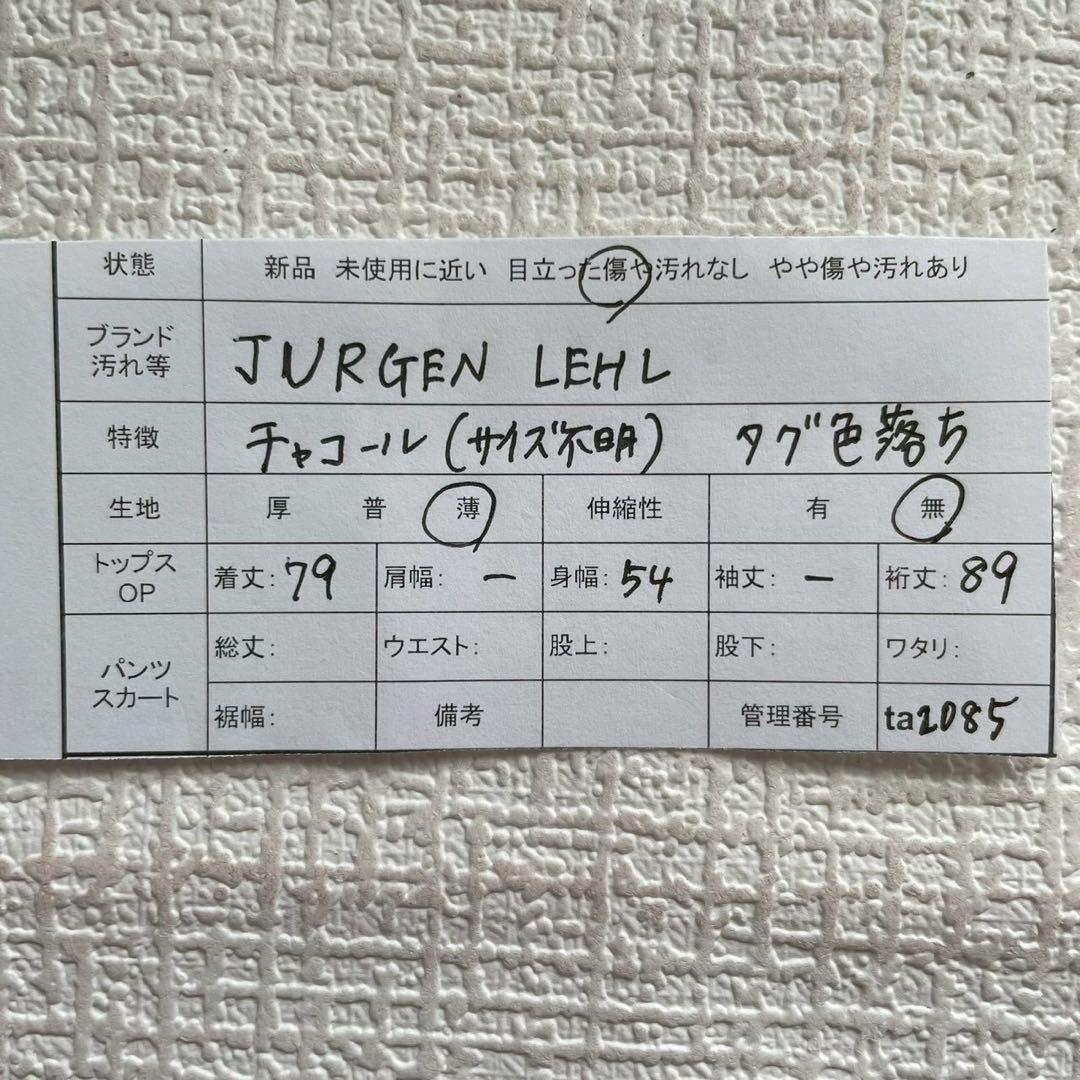 状態 新品 未使用に近い 目立った傷や汚れなし やや傷や汚れあり
ブランド
汚れ等
JURGEN LEHL
特徴 チャコール(サイズ不明) タグ色落ち
生地 厚 普 薄 伸縮性 有 無
トップス
OP
着丈: 79 肩幅: ー 身幅: 54 袖丈: ー 裄丈: 89
パンツ
スカート
総丈: ウエスト: 股上: 股下: ワタリ:
裾幅: 備考 管理番号 ta2085